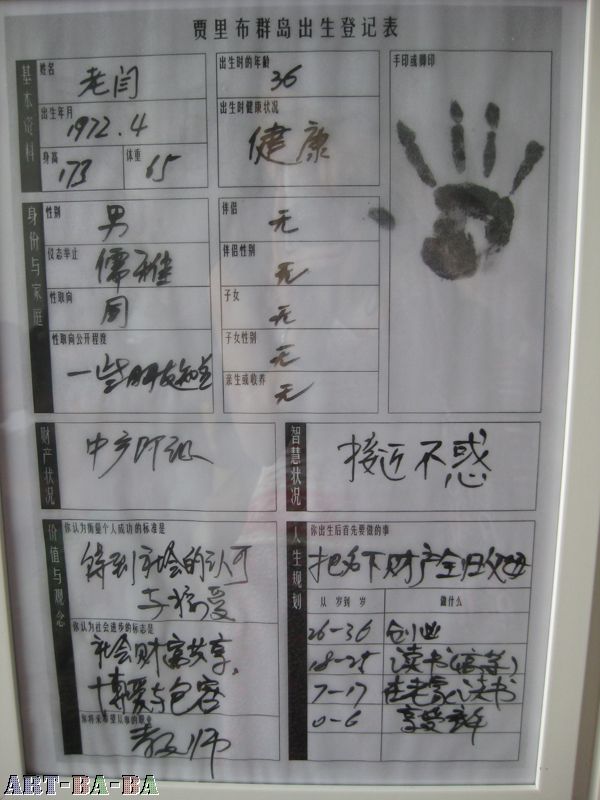 贾里布群岛出生登记表
基本资料
姓名
老闫
出生年月
1972.4
身高
173
体重
65
出生时的年龄
36
出生时健康状况
健康
手印或脚印
身份与家庭
性别
男
仪态举止
儒雅
性取向
同
性取向公开程度
一些朋友知道
伴侣
无
伴侣性别
无
子女
无
子女性别
无
亲生或收养
无
财产状况
中产阶级
智慧状况
接近不惑
价值与观念
你认为衡量个人成功的标准是
得到社会的认可
与狗爱
你认为社会进步的标志是
社会财富共享,
真爱与包容
你将来希望从事的职业
教师
人生规划
你出生后首先要做的事
把名下财产全归父母
从 岁到 岁
做什么
26-36 创业
18-25 读书(高等)
7-17 在老家读书
0-6 享受童年
ART-BA-BA